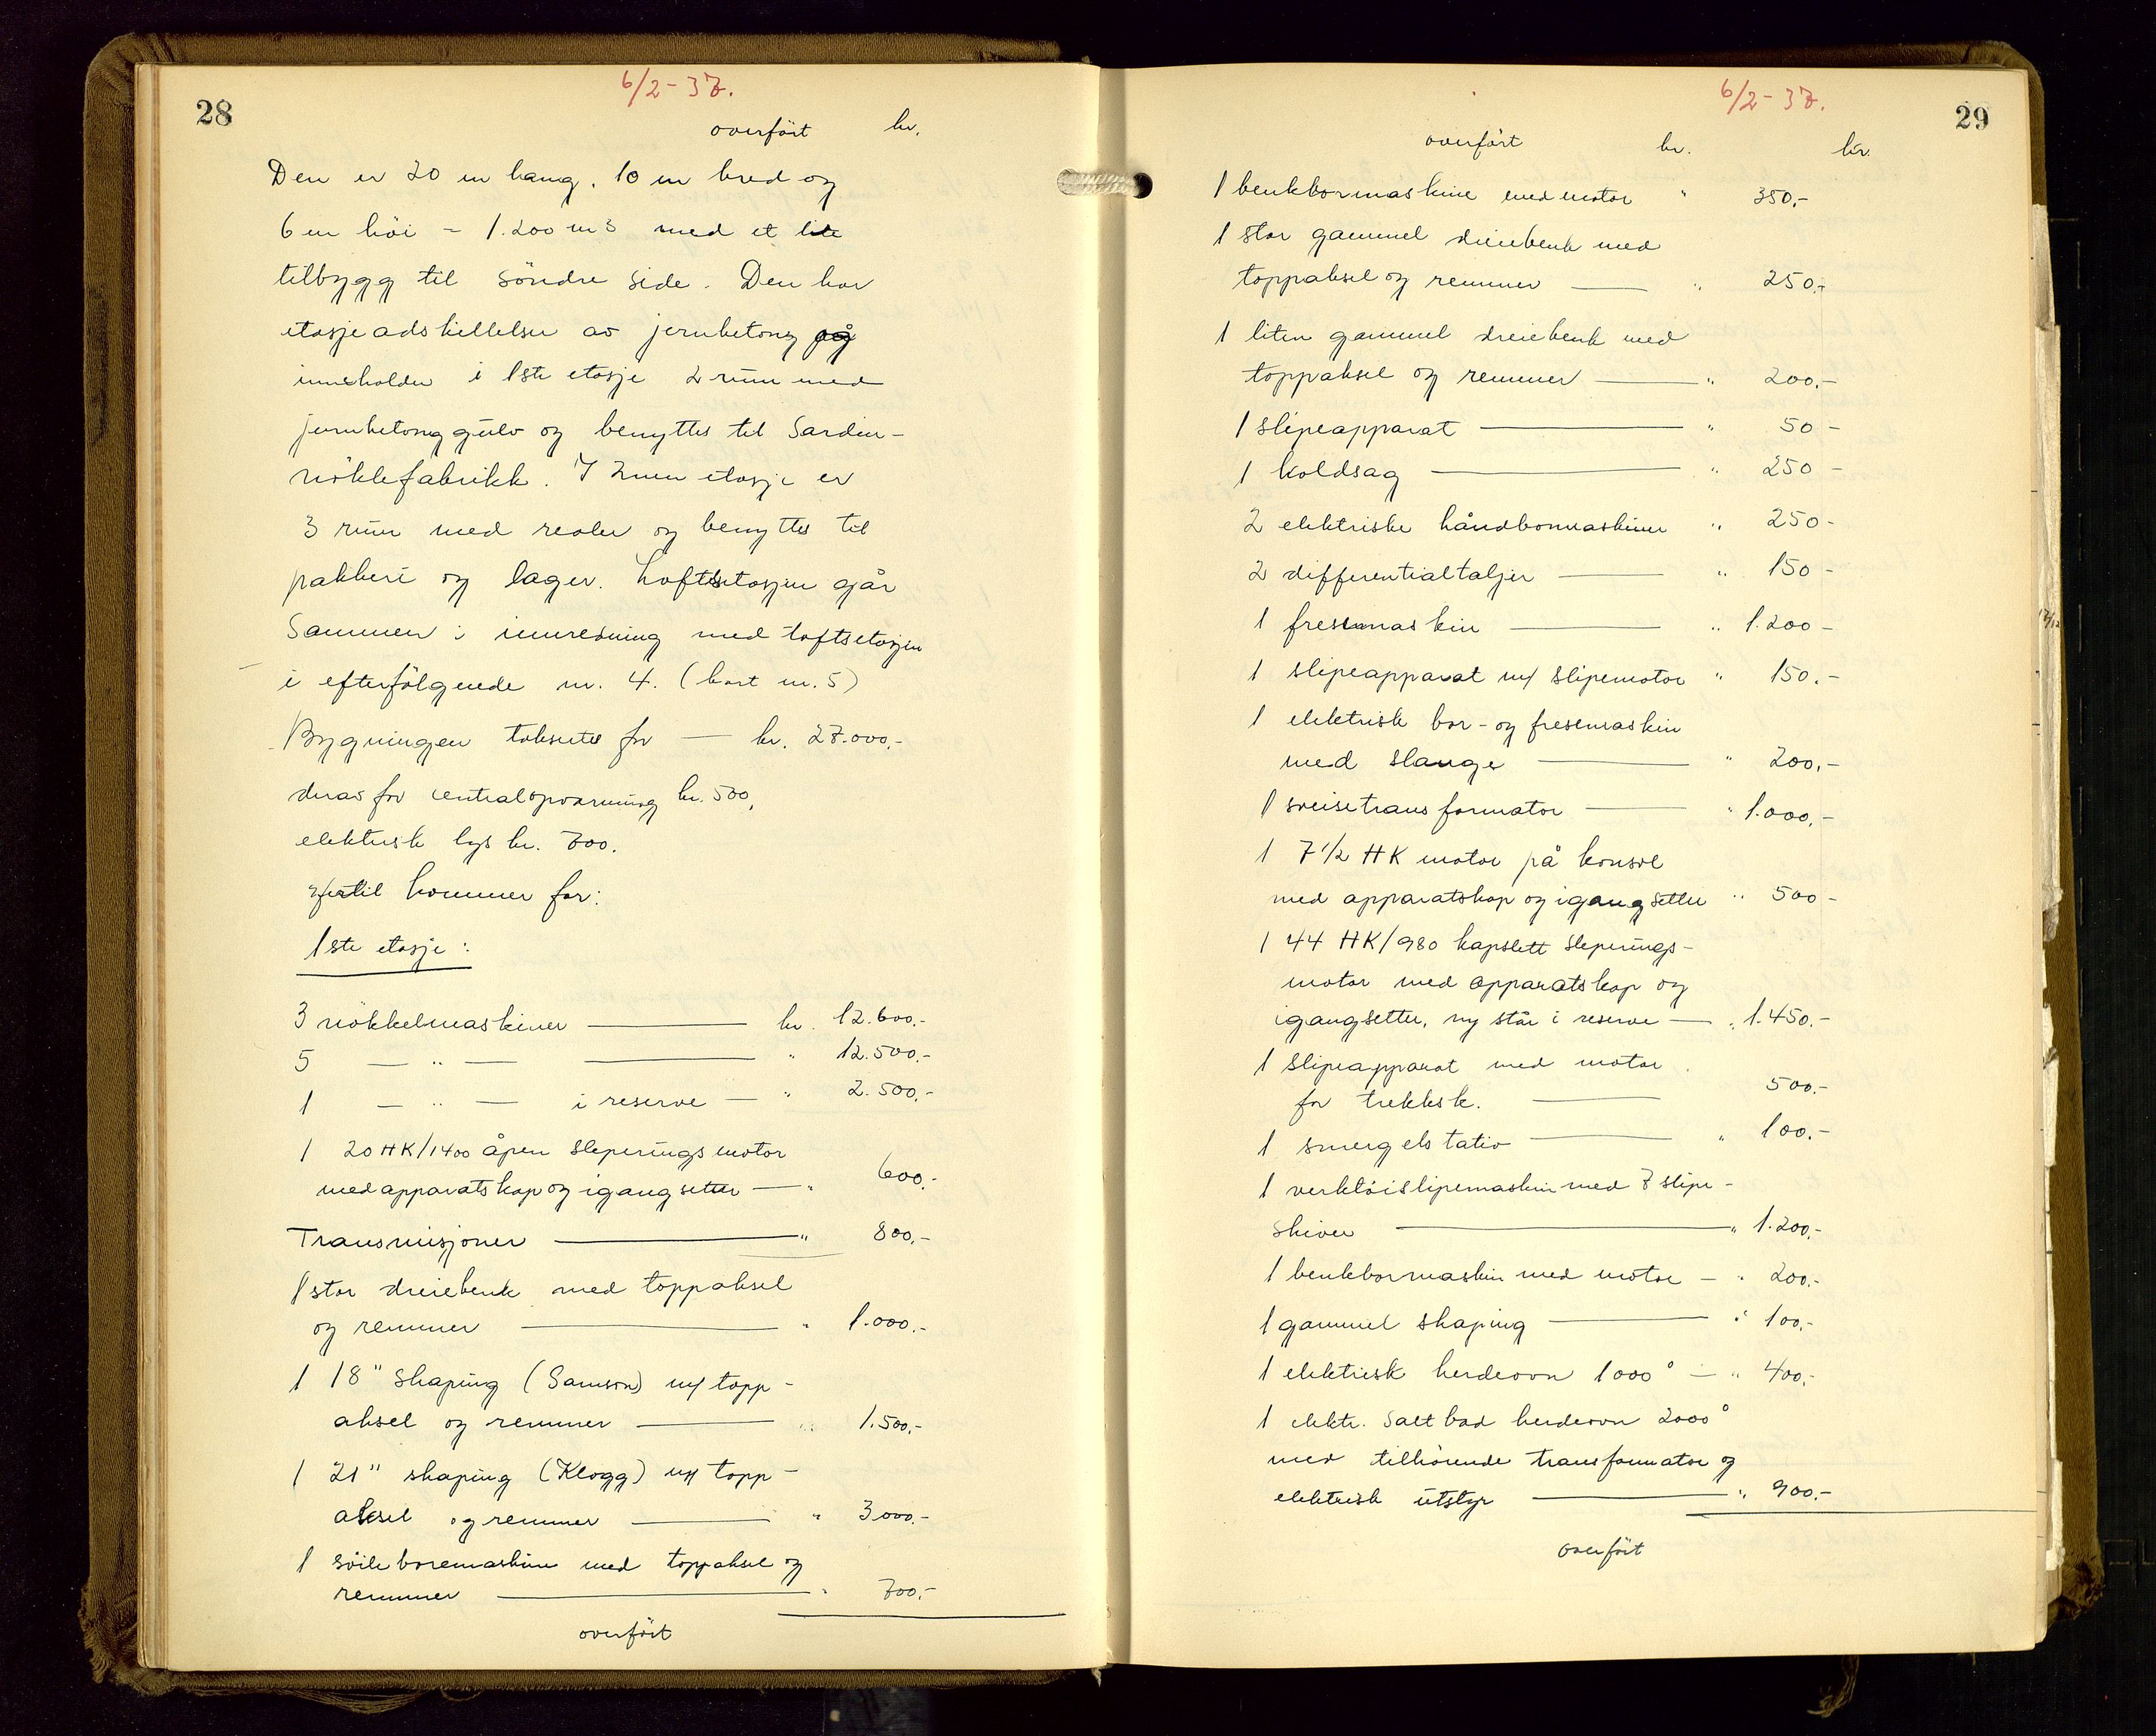 28
6/2-37.
overført kr.
Den er 20 m lang, 10 m bred og
6 m höi = 1.200 m3 med et lite
tilbygg til söndre side. Den har
etasjeadskillelser av jernbetong og
inneholder i 1ste etasje 2 rum med
jernbetonggulv og benyttes til Sardin-
nökkefabrikk. I 2nen etasje er
3 rum med reoler og benyttes til
pakkeri og lager. Loftsetasjen går
Sammen i innredning med loftsetasjen
i efterfölgende nr. 4. (kart nr. 5)
Bygningen takseres for — kr. 27.000,-
derav for centralopvarming kr. 500,
elektrisk lys kr. 700.
Hertil kommer for:
1ste etasje:
3 nökkelmaskiner — kr. 12.600.-
5 — " — — " 12.500.-
1 — " — i reserve — " 2.500.-
1 20 HK/1400 åpen Sleperingsmotor
med apparatskap og igangsetter — " 600.-
Transmisjoner — " 800.-
1 stor dreiebenk med toppaksel
og remmer — " 1.000.-
1 18" Shaping (Samson) m/ topp-
aksel og remmer — " 1.500.-
1 21" shaping (Klogg) m/ topp-
aksel og remmer — " 3.000.-
1 söileboremaskine med toppaksel og
remmer — " 700.-
overfört
6/2-37.
29
overfört kr. kr.
1 benkbormaskine med motor " 350.-
1 stor gammel dreiebenk med
toppaksel og remmer — " 250.-
1 liten gammel dreiebenk med
toppaksel og remmer — " 200.-
1 slipeapparat — " 50 -
1 koldsag — " 250 -
2 elektriske håndbormaskiner " 250 -
2 differentialtaljer — " 150 -
1 fresemaskin — " 1.200 -
1 slipeapparat m/ slipemotor " 150.-
1 elektrisk bor- og fresemaskin
med slange — " 200.-
1 sveisetransformator — " 1.000.-
1 7 1/2 HK motor på konsol
med apparatskap og igangsetter " 500 -
1 44 HK/980 kapslett Sleperings-
motor med apparatskap og
igangsetter, ny står i reserve — " 1.450.-
1 Slipeapparat med motor
for trekksk. — 500.-
1 smergelstativ — " 100.-
1 verktöislipemaskin med 7 slipe-
skiver — " 1.200.-
1 benkbormaskin med motor — " 200.-
1 gammel shaping — " 100.-
1 elektrisk herdeovn 1000° — " 400.-
1 elektr. Saltbad herdeovn 2000°
med tilhörende transformator og
elektrisk utstyr — " 900.-
overfört